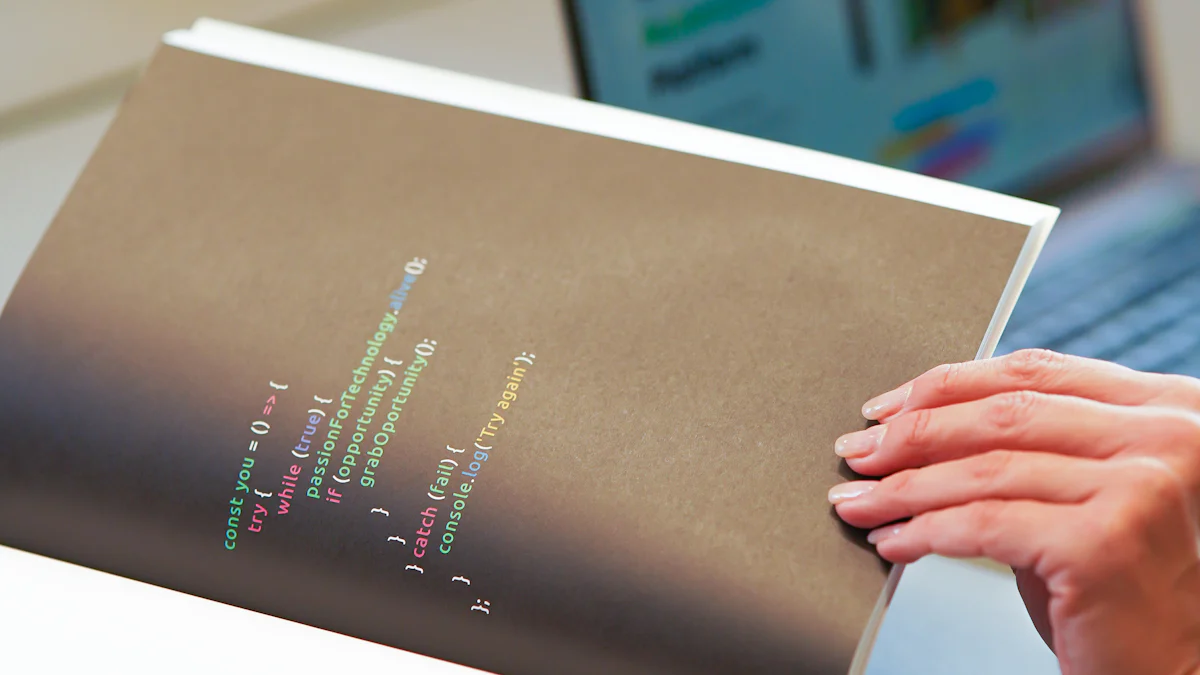 const you = () => {
try {
while (true) {
passionForTechnology.alive();
if (opportunity) {
grabOportunity();
}
}
} catch (fail) {
console.log('Try again');
}
};